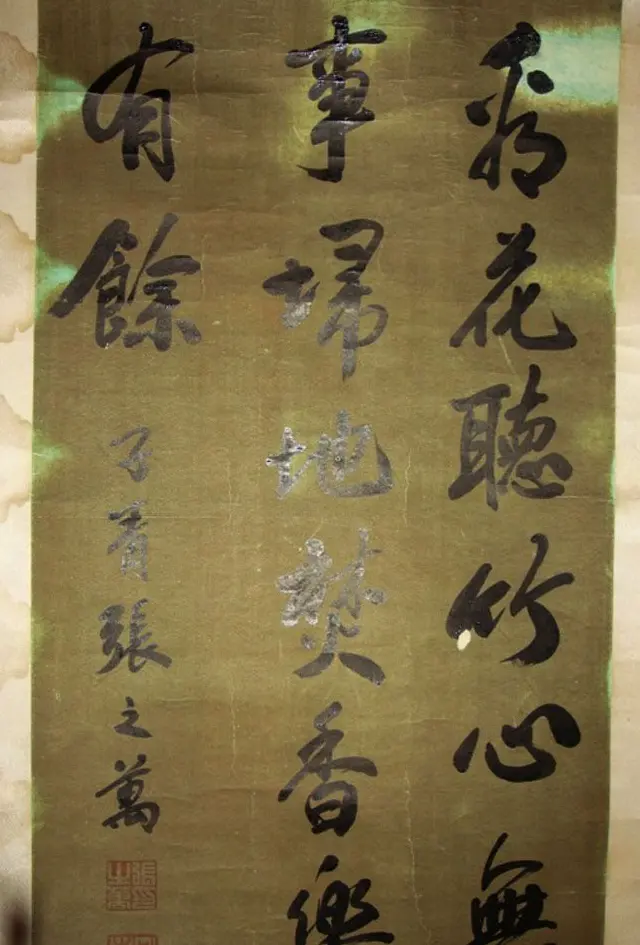 看花聽竹心無
事埽地焚香樂
有餘
子青張之萬